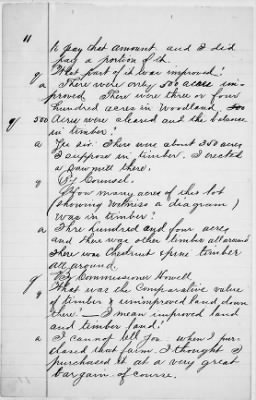 11
to pay that amount and I did
pay a portion of it.
q What part of it was improved?
a There were only 500 acres im-
proved. There were three or four
hundred acres in woodland.
q 500 acres were cleared and the balance
in timber?
a Yes sir. There was about 350 acres
I suppose in timber. I erected
a saw mill there.
q By Counsel.
How many acres of this lot
(showing witness a diagram)
was in timber?
a Three hundred and four acres
and there was other timber all around
There was Chestnut spruce timber
all around.
q By Commissioner Howell
q What was the Comparative value
of timber & unimproved land down
there? — I mean improved land
and timber land?
a I cannot tell you — when I pur-
chased that farm I thought I
purchased it at a very great
bargain of course.